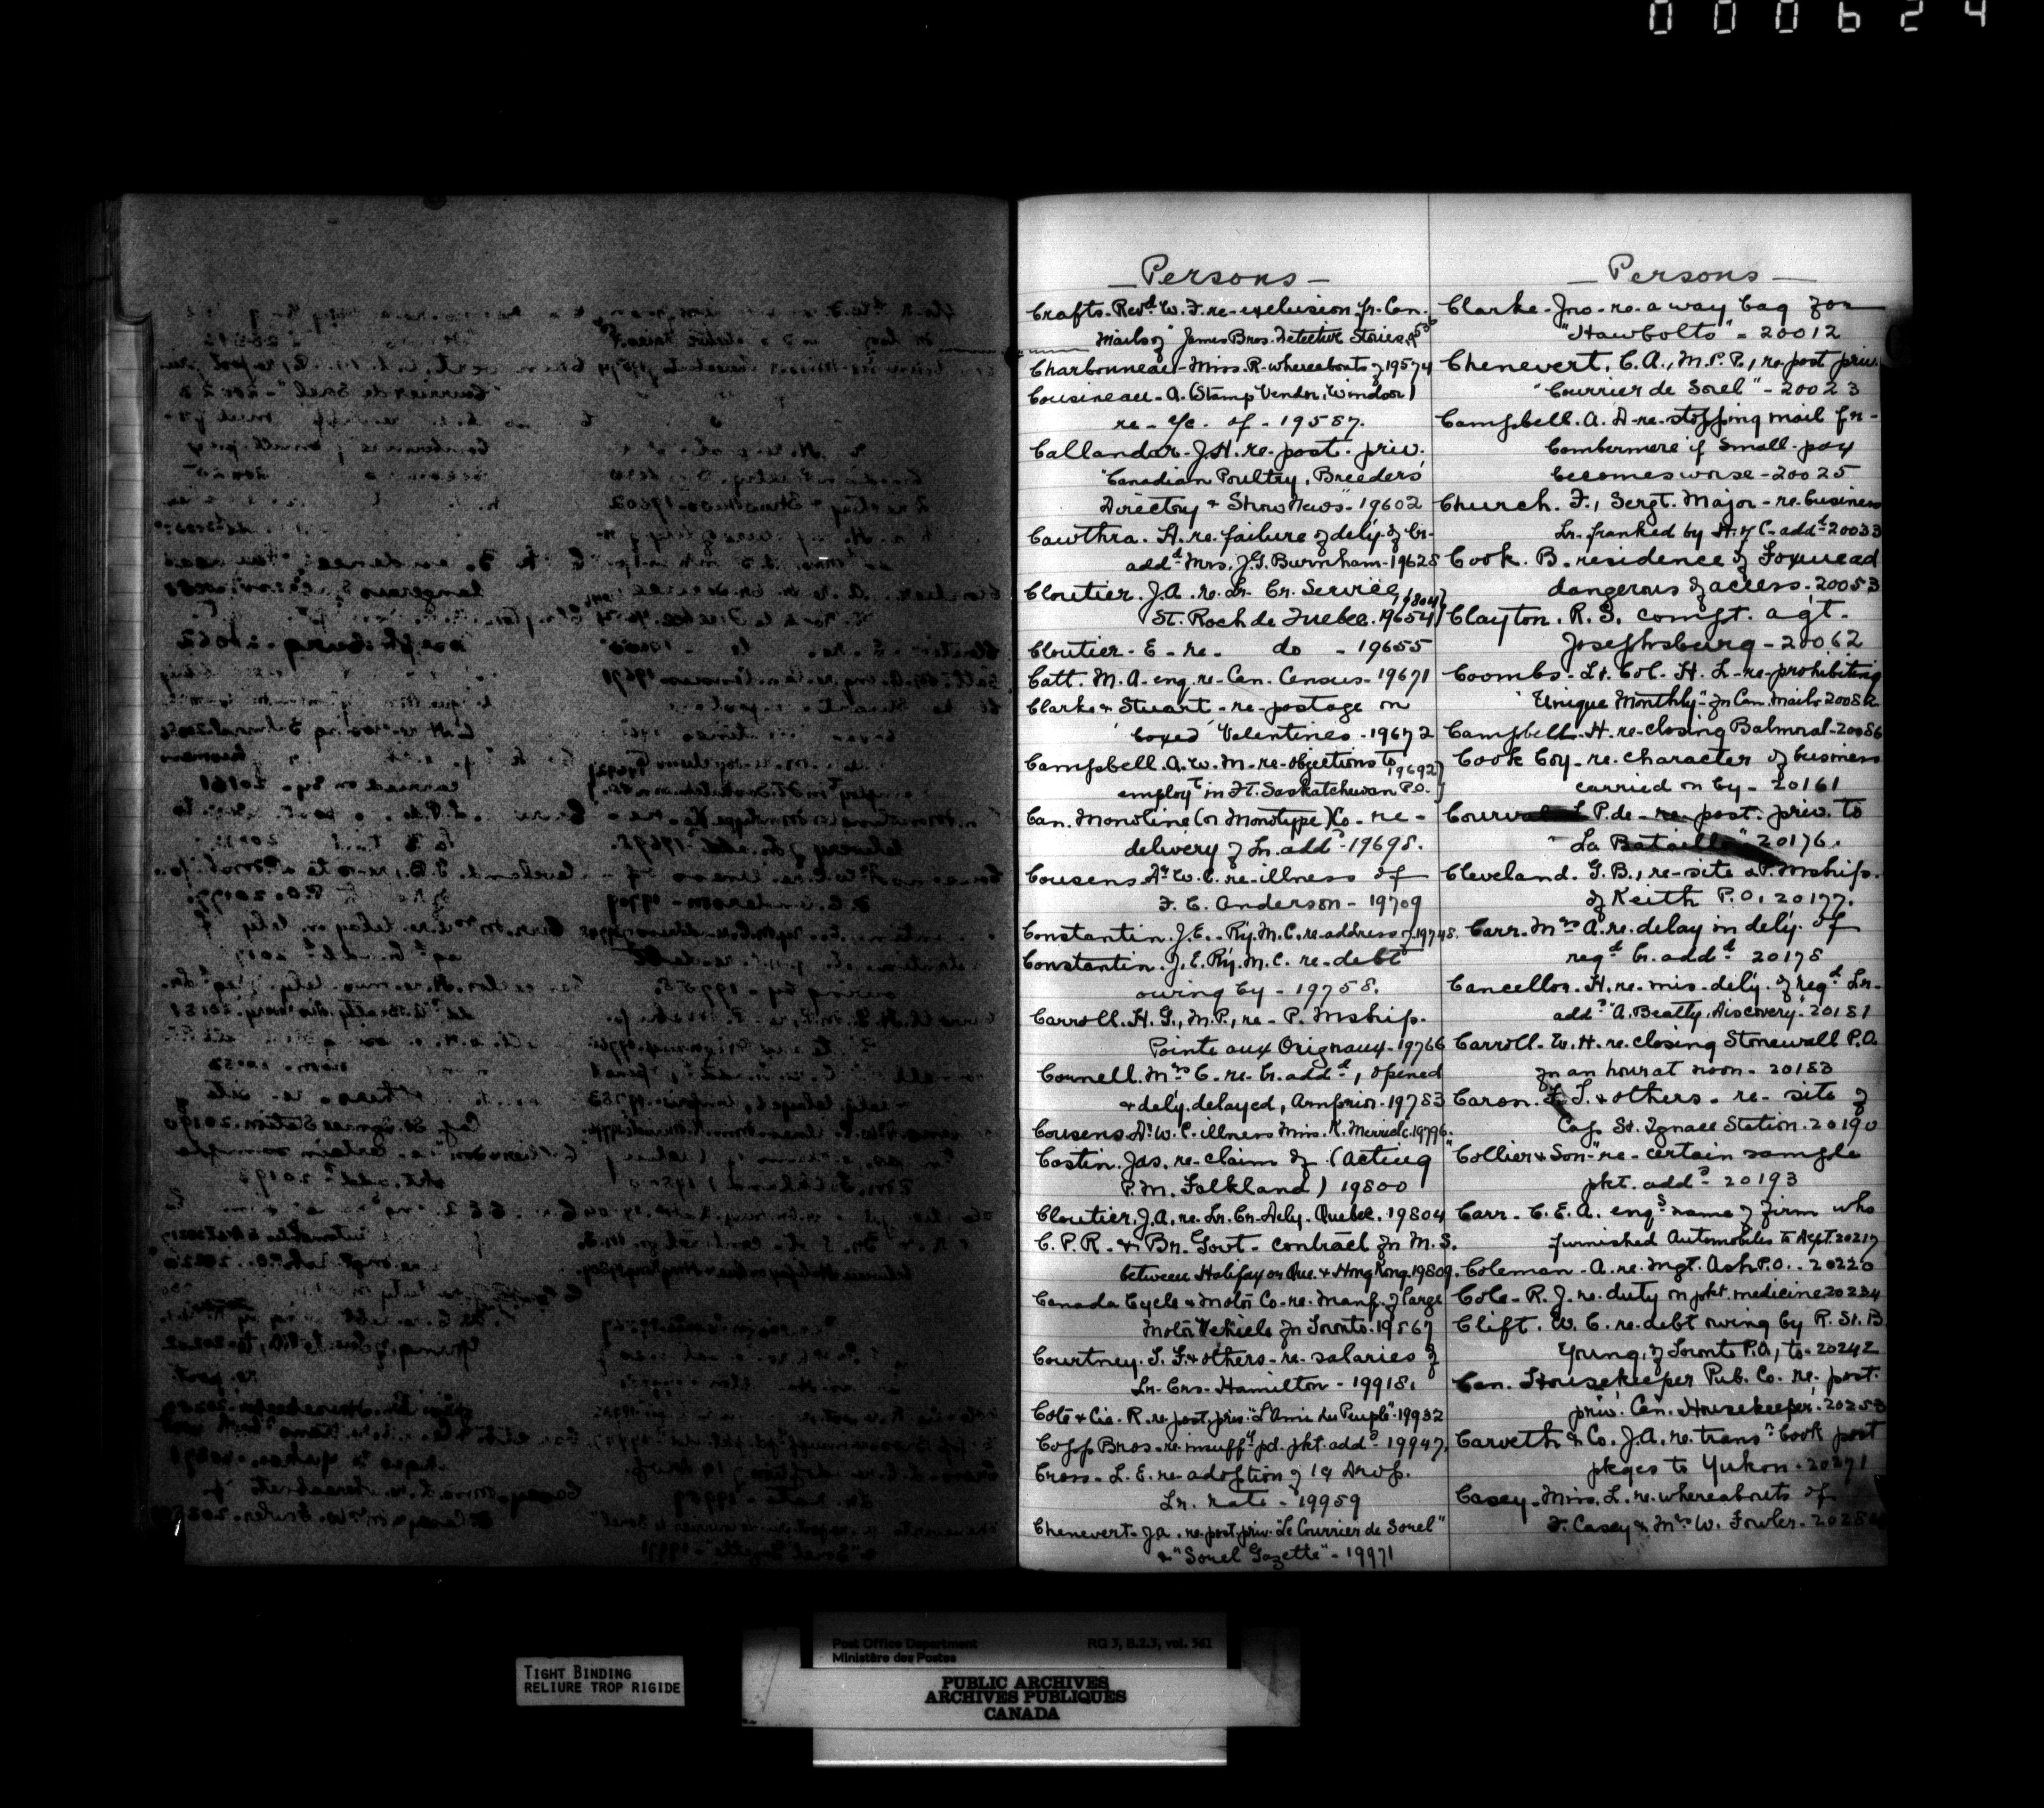 000624
- Persons -
Crafts. Revd. W. F. re- exclusion fr. Can.
Mails of "James Bros. Detective Stories"
Charbonneau - Miss. R - whereabouts of 19574
Cousineau - A. (Stamp Vendor, Windsor)
re - a/c. of - 19587.
Callandar. J.H. re. post. priv.
"Canadian Poultry, Breeders'
Directory & Show News" - 19602
Cawthra. H. re. failure of dely. of Lr-
addd. Mrs. J.G. Burnham - 19628
Cloutier. J.A. re. Lr. Cr. Service, 19804
St. Roch de Quebec. 19654
Cloutier - E - re. do - 19655
Catt. M. A - eng. re - Can. Census - 19671
Clarke & Stuart - re - postage on
"boxed" Valentines - 19672
Campbell. A. W. M - re - objections to 19692
employt in Ft. Saskatchewan P.O.
Can. Monoline (or Monotype) Co - re -
delivery of Lr. adds - 19698.
Cousens. Dr. W. C. re - illness of
F. C. Anderson - 19709
Constantin. J.E. - Ry. M. C. re - address of 19748.
Constantin. J. E. Ry. M. C. re - debt
owing by - 19758.
Carroll. H. G., M.P., re - P. Mship.
Pointe aux Orignaux - 19766
Cornell. Mrs C. re - lr. addd, opened
& dely. delayed, Arnprior - 19783
Cousens Dr W. C. illness Miss. K. Merrick. 19796.
Costin. Jas. re - claim of (Acting
P. M. Falkland) 19800
Cloutier, J.A, re. Lr. Cr. Dely. Quebec. 19804
C. P. R. & Br. Govt - contract for M. S.
between Halifax or Que. & Hong Kong. 19809.
Canada Cycle & Motor Co - re. Manf. of large
Motor Vehicle for Toronto. 19867
Courtney. T. F. & others - re - salaries of
Lr - Crs - Hamilton - 19918.
Coté & Cie. R. re. post. priv. "L'Ami du Peuple" - 19932
Copp Bros. re. insuffy. pd. pkt. adds - 19947.
Cross - L. E. re - adoption of 1¢ Drop.
Lr. rate - 19959
Chenevert - J.A. re. post. priv. "Le Courrier de Sorel"
& "Sorel Gazette" - 19971
- Persons -
Clarke - Jno - re - a way bag for
"Hawbolts" - 20012
Chenevert, C. A., M. P. P., re. post priv.
"Courrier de Sorel" - 20023
Campbell. A. D - re - stopping mail fr -
Combermere if small - pox
becomes worse - 20025
Church. F., Sergt. Major - re - business
Lr. franked by H. of C - addd - 20033
Cook. B. residence of Foxmead
dangerous of access. 20053
Clayton. R. S. compt. agt.
Josephsburg - 20062
Coombs - Lt. Col. H. L - re - prohibiting
"Unique Monthly" fr Can. mails 20082
Campbell - H. re - closing Balmoral - 20086
Cook Coy - re. character of business
carried on by - 20161
Courval L. P. de - re - post. priv. to
"La Bataille" 20176.
Cleveland. G. B., re - site & P. Mship.
of Keith P.O. 20177.
Carr. Mrs A. re. delay in dely. of
regd lr. addd 20178
Cancellor. H. re. mis - dely. of regd Lr -
adds "A. Beatty, Discovery" - 20181
Carroll. W. H. re. closing Stonewall P.O.
for an hour at noon - 20183
Caron. L. T. & others - re - site of
Cap St. Ignace Station. 20190
"Collier & Son" - re - certain sample
pkt. adds - 20193
Carr - C. E. A. engs name of firm who
furnished Automobiles to Dept. 20217
Coleman - A. re. Mgt. Ash P.O. - 20220
Cole - R. J. re. duty on pkt. medicine 20224
Clift. W. C. re. debt owing by R. St. B.
Young, of Toronto P.O., to - 20242
Can. Housekeeper Pub. Co. re. post.
priv. "Can. Housekeeper". 20253
Carveth & Co. J.A. re. transn book post
pkges to Yukon. 20271
Casey - Miss. L. re. whereabouts of
F. Casey & Mrs W. Fowler -
Post Office Department RG 3, B.2.3, vol. 561
Ministère des Postes
TIGHT BINDING
RELIURE TROP RIGIDE
PUBLIC ARCHIVES
ARCHIVES PUBLIQUES
CANADA